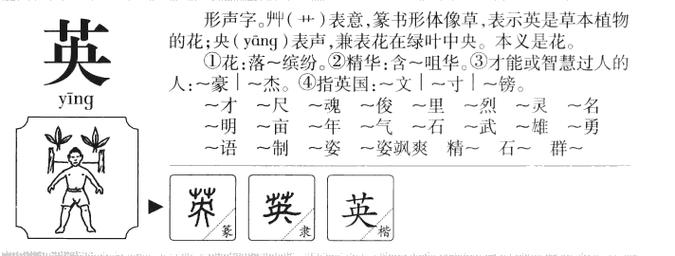 英
yīng
形声字。艸(艹)表意,篆书形体像草,表示英是草本植物
的花;央(yāng)表声,兼表花在绿叶中央。本义是花。
①花:落～缤纷。②精华:含～咀华。③才能或智慧过人的
人:～豪｜～杰。④指英国:～文｜～寸｜～镑。
～才 ～尺 ～魂 ～俊 ～里 ～烈 ～灵 ～名
～明 ～亩 ～年 ～气 ～石 ～武 ～雄 ～勇
～语 ～制 ～姿 ～姿飒爽 精～ 石～ 群～
英 篆 英 隶 英 楷